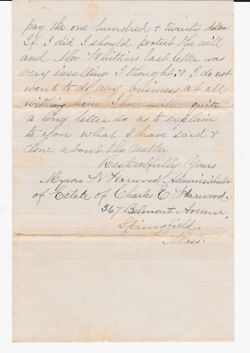 pay the one hundred & twenty dollars
If I did I should protest the will
and Mr Whitten's last letter was
very insulting I thought, & I do not
want to do any business at all
with him. I have written quite
a long letter so as to explain
to you what I have said &
done about the matter
Respectfully Yours
Myron W Harwood Administrator
of Estate of Charles E Harwood.
367 Belmont Avenue,
Springfield,
Mass.